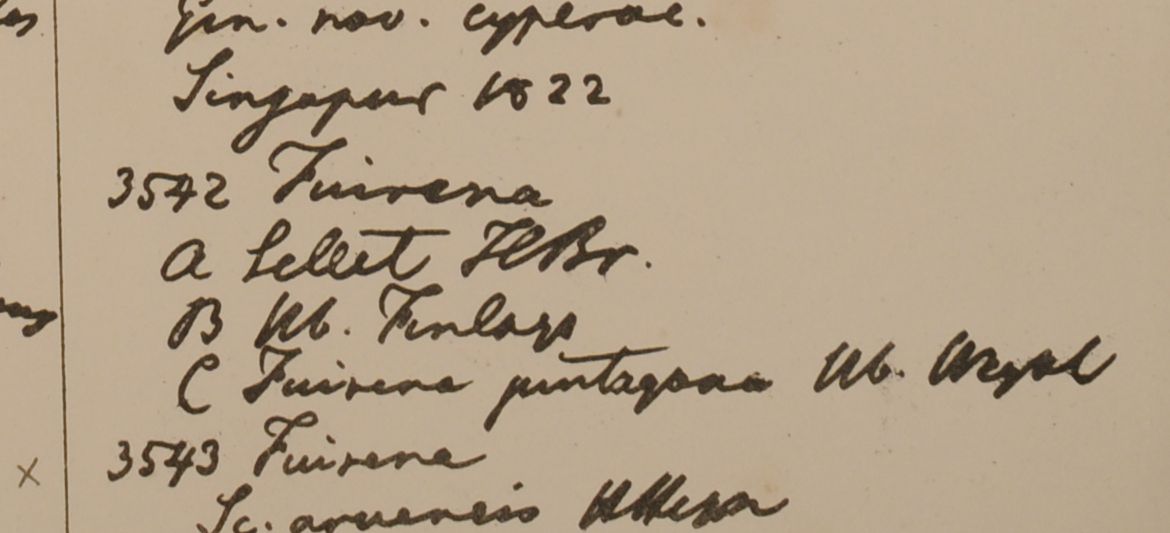 Gen. nov. cyperac.
Singapur 1822
3542 Fuirena
a Sellet HBr.
B Hb. Finlays
C Fuirena pentagona Hb. Wight
3543 Fuirena
x
Sc. arvensis